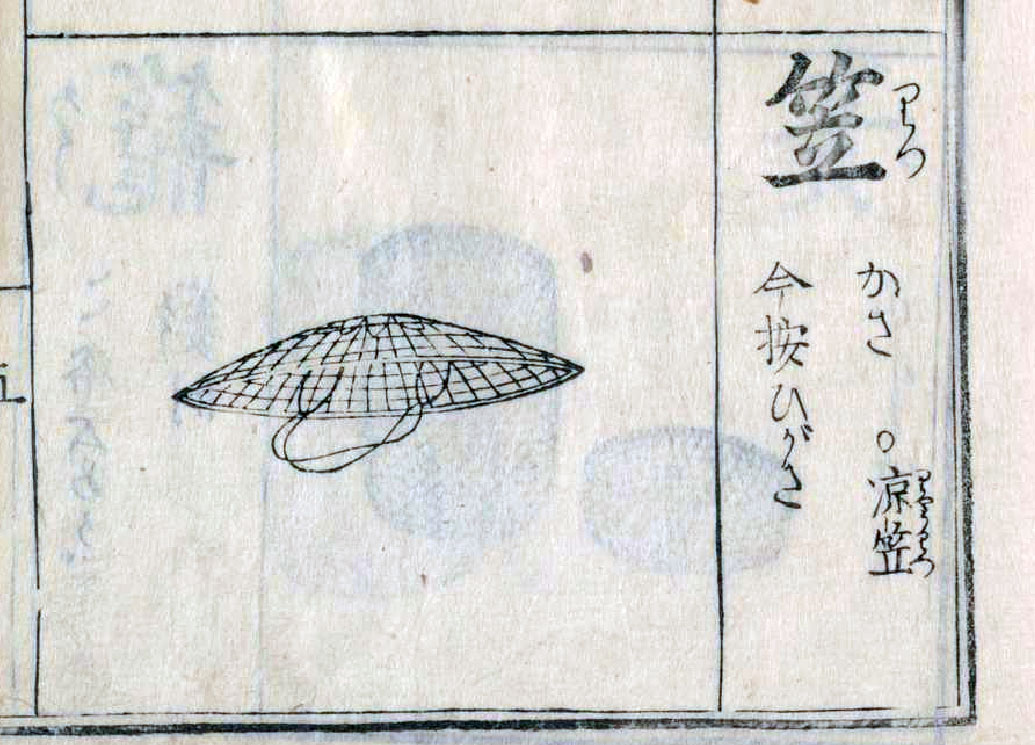 笠
りつ
かさ ○凉笠
りやうりつ
今按ひがさ